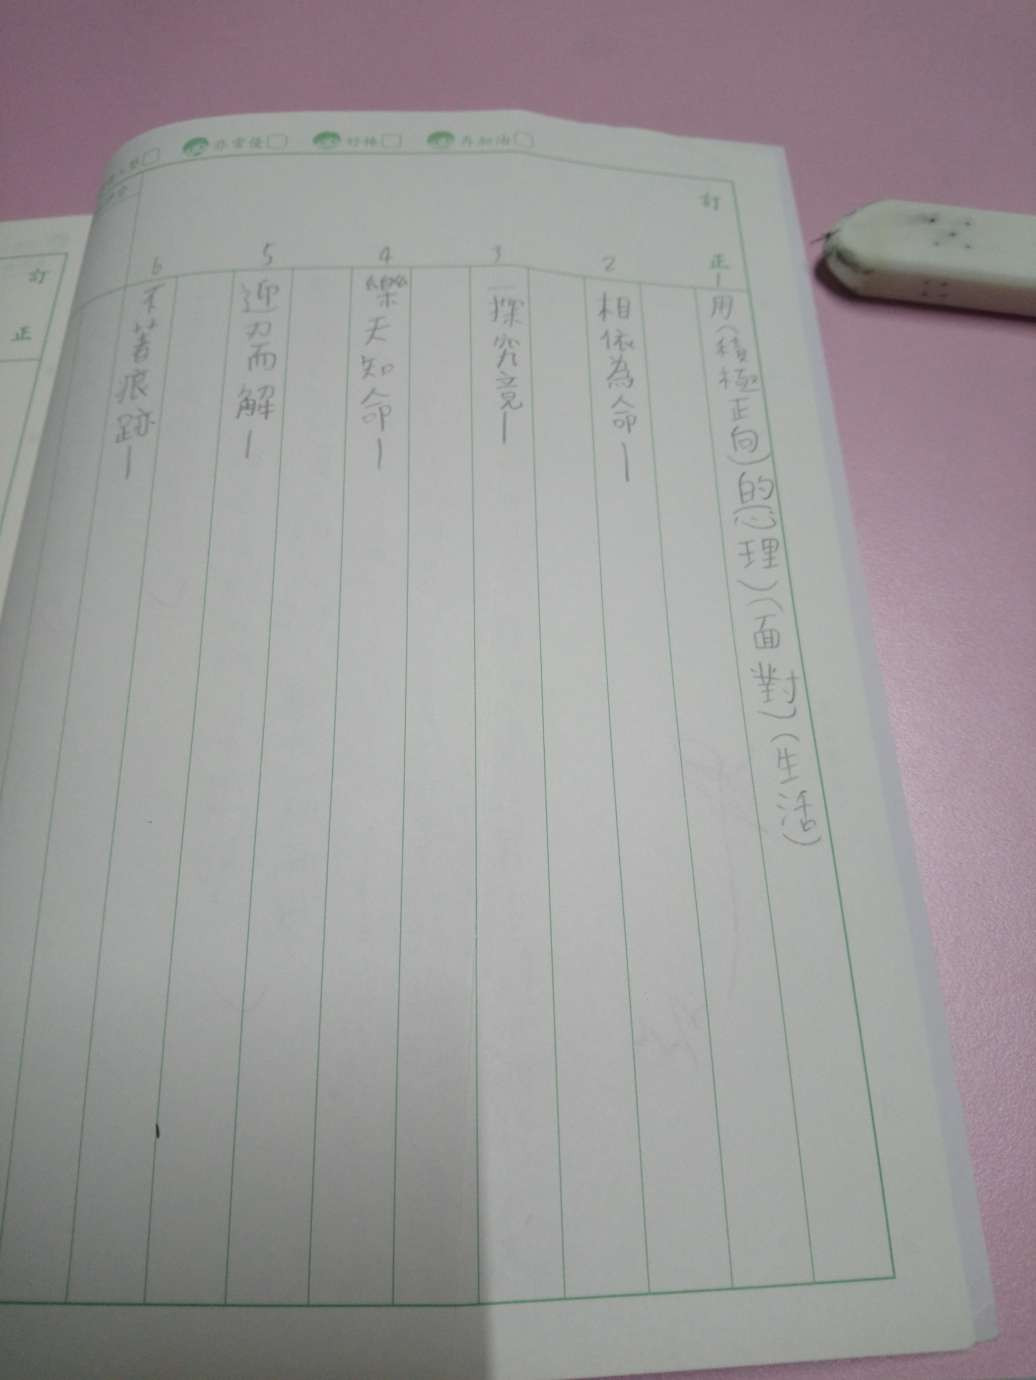 非常優
好棒
再加油
訂正
1 用(積極正向)的心理)(面對)(生活)
2 相依為命—
3 一探究竟—
4 樂天知命—
5 迎刃而解—
6 不著痕跡—
訂正